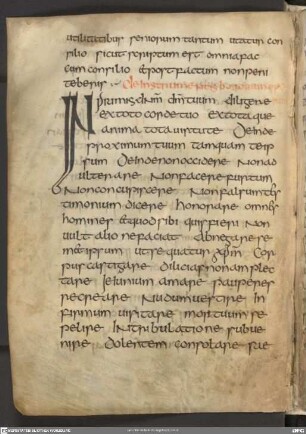 utilitatibus seniorum tantum utatur con
silio sicut scriptum est omnia fac
cum consilio et post factum non peni
teberis
In primis dnm dm tuum diligere
ex toto corde tuo ex tota
anima tota uirtute deinde
proximum tuum tamquam te ip
sum deinde non occidere Non ad
ulterare Non facere furtum
Non concupiscere Non falsum tes
timonium dicere honorare omnes
homines et quod sibi quis fieri Non
uult alio ne faciat Abnegare se
met ipsum ut sequatur xpm Cor
pus castigare dilicias non amplec
tare Ieiunium amare pauperes
recreare Nudum uestire In
firmum uisitare mortuum se
pelire In tribulatione subue
nire dolentem consolare